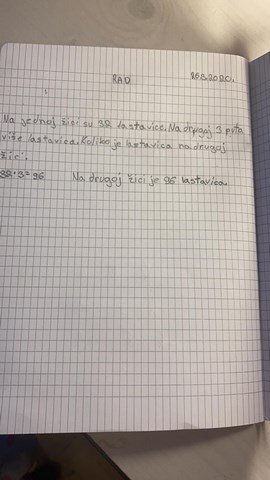 RAD
Na jednoj žici su 32 lastavice. Na drugoj 3 puta
više lastavica. Koliko je lastavica na drugoj
žici.
32·3=96 Na drugoj žici je 96 lastavica